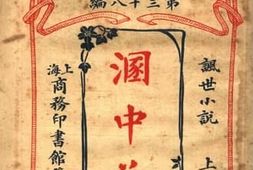 第三十八編
諷世小說 上
溷中
上海商務印書館